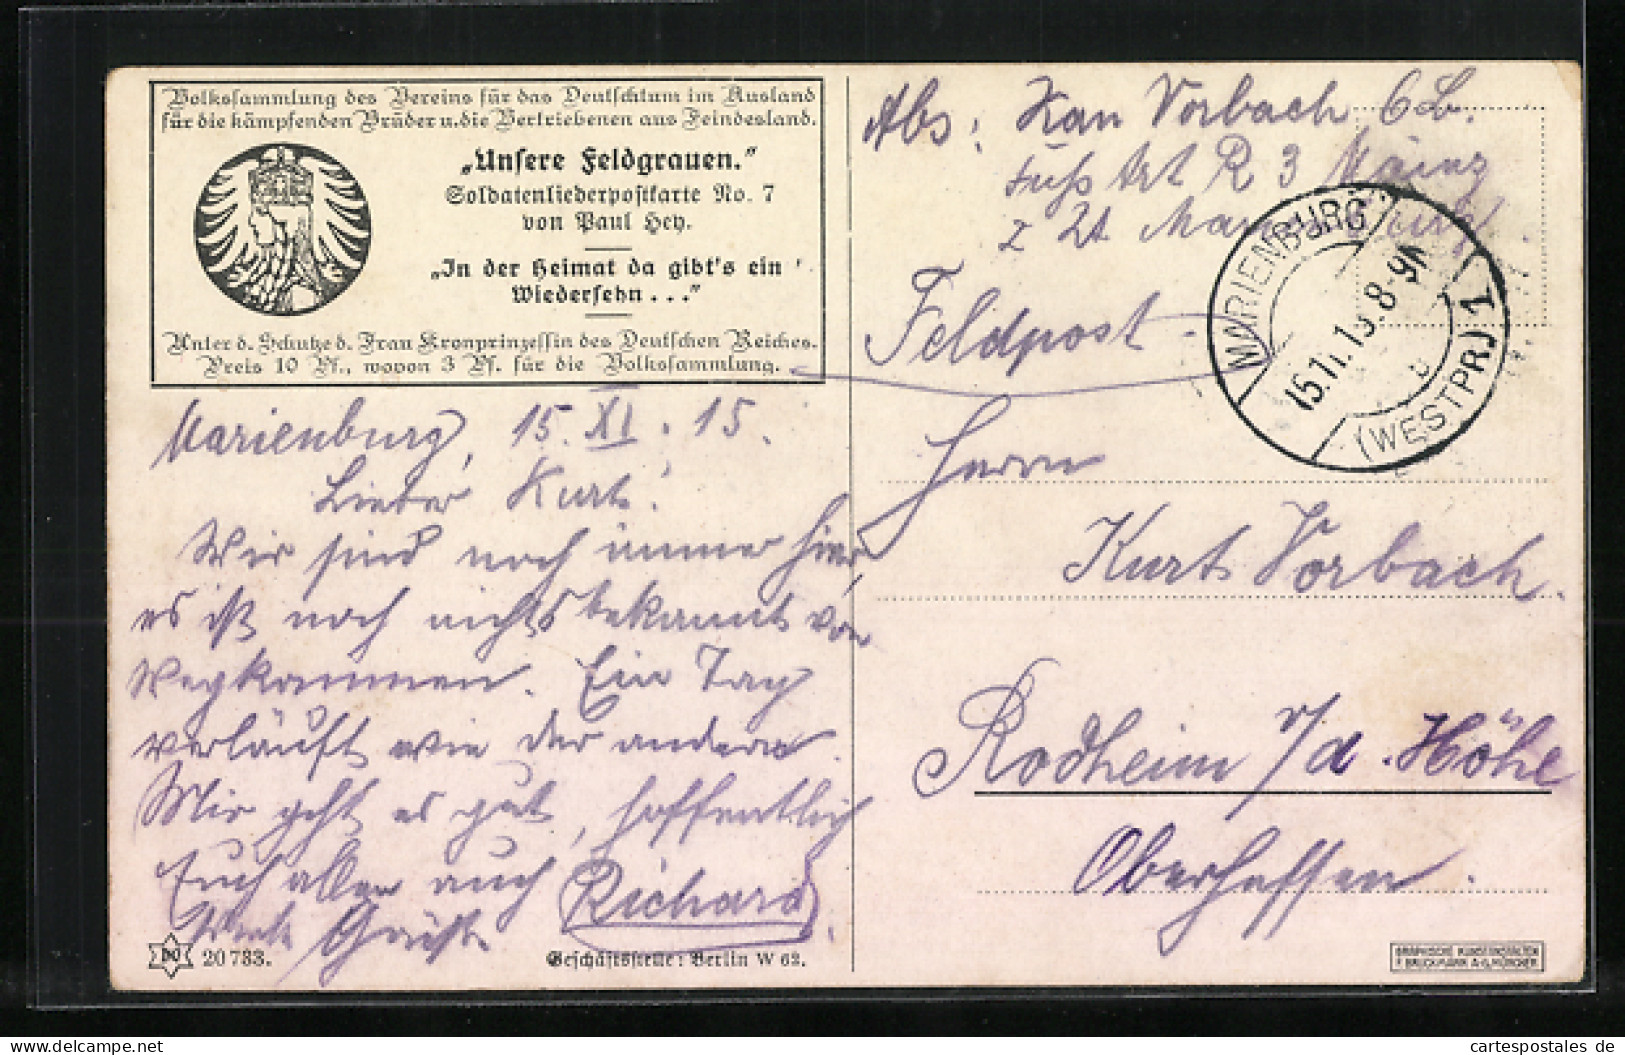 Volkssammlung des Vereins für das Deutschtum im Ausland
für die kämpfenden Brüder u. die Vertriebenen aus Feindesland.
„Unsere Feldgrauen.“
Soldatenliederpostkarte No. 7
von Paul Hey.
„In der Heimat da gibt's ein
Wiedersehn . . .“
Unter d. Schutze d. Frau Kronprinzessin des Deutschen Reiches.
Preis 10 Pf., wovon 3 Pf. für die Volkssammlung.
Marienburg, 15. XI. 15.
Lieber Kurt!
Wir sind noch immer hier
es ist noch nichts bekannt von
Wegkommen. Ein Tag
verläuft wie der andere.
Mir geht es gut, hoffentlich
Euch allen auch
Grüße Richard
DO 20733.
Geschäftsstelle: Berlin W 62.
Abs: Kan Vorbach
Fuß Art R 3 Mainz
z Zt
Feldpost
MARIENBURG (WESTPR) 1
15.11.15.8-9N
Herrn
Kurt Vorbach.
Rodheim v/d. Höhe
Oberhessen.
GRAPHISCHE KUNSTANSTALTEN
F. BRUCKMANN A.G. MÜNCHEN
cartespostales de